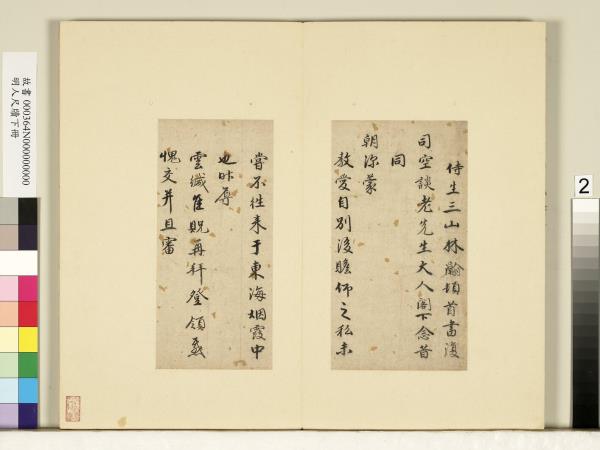 侍生三山林瀚頓首書復
司空談老先生大人閣下念昔
同
朝深蒙
教愛自別後瞻仰之私未
嘗不往來于東海烟霞中
也昨辱
雲緘隹貺再拜登領感
愧交并且審
故書 000364N000000000
明人尺牘下冊
2